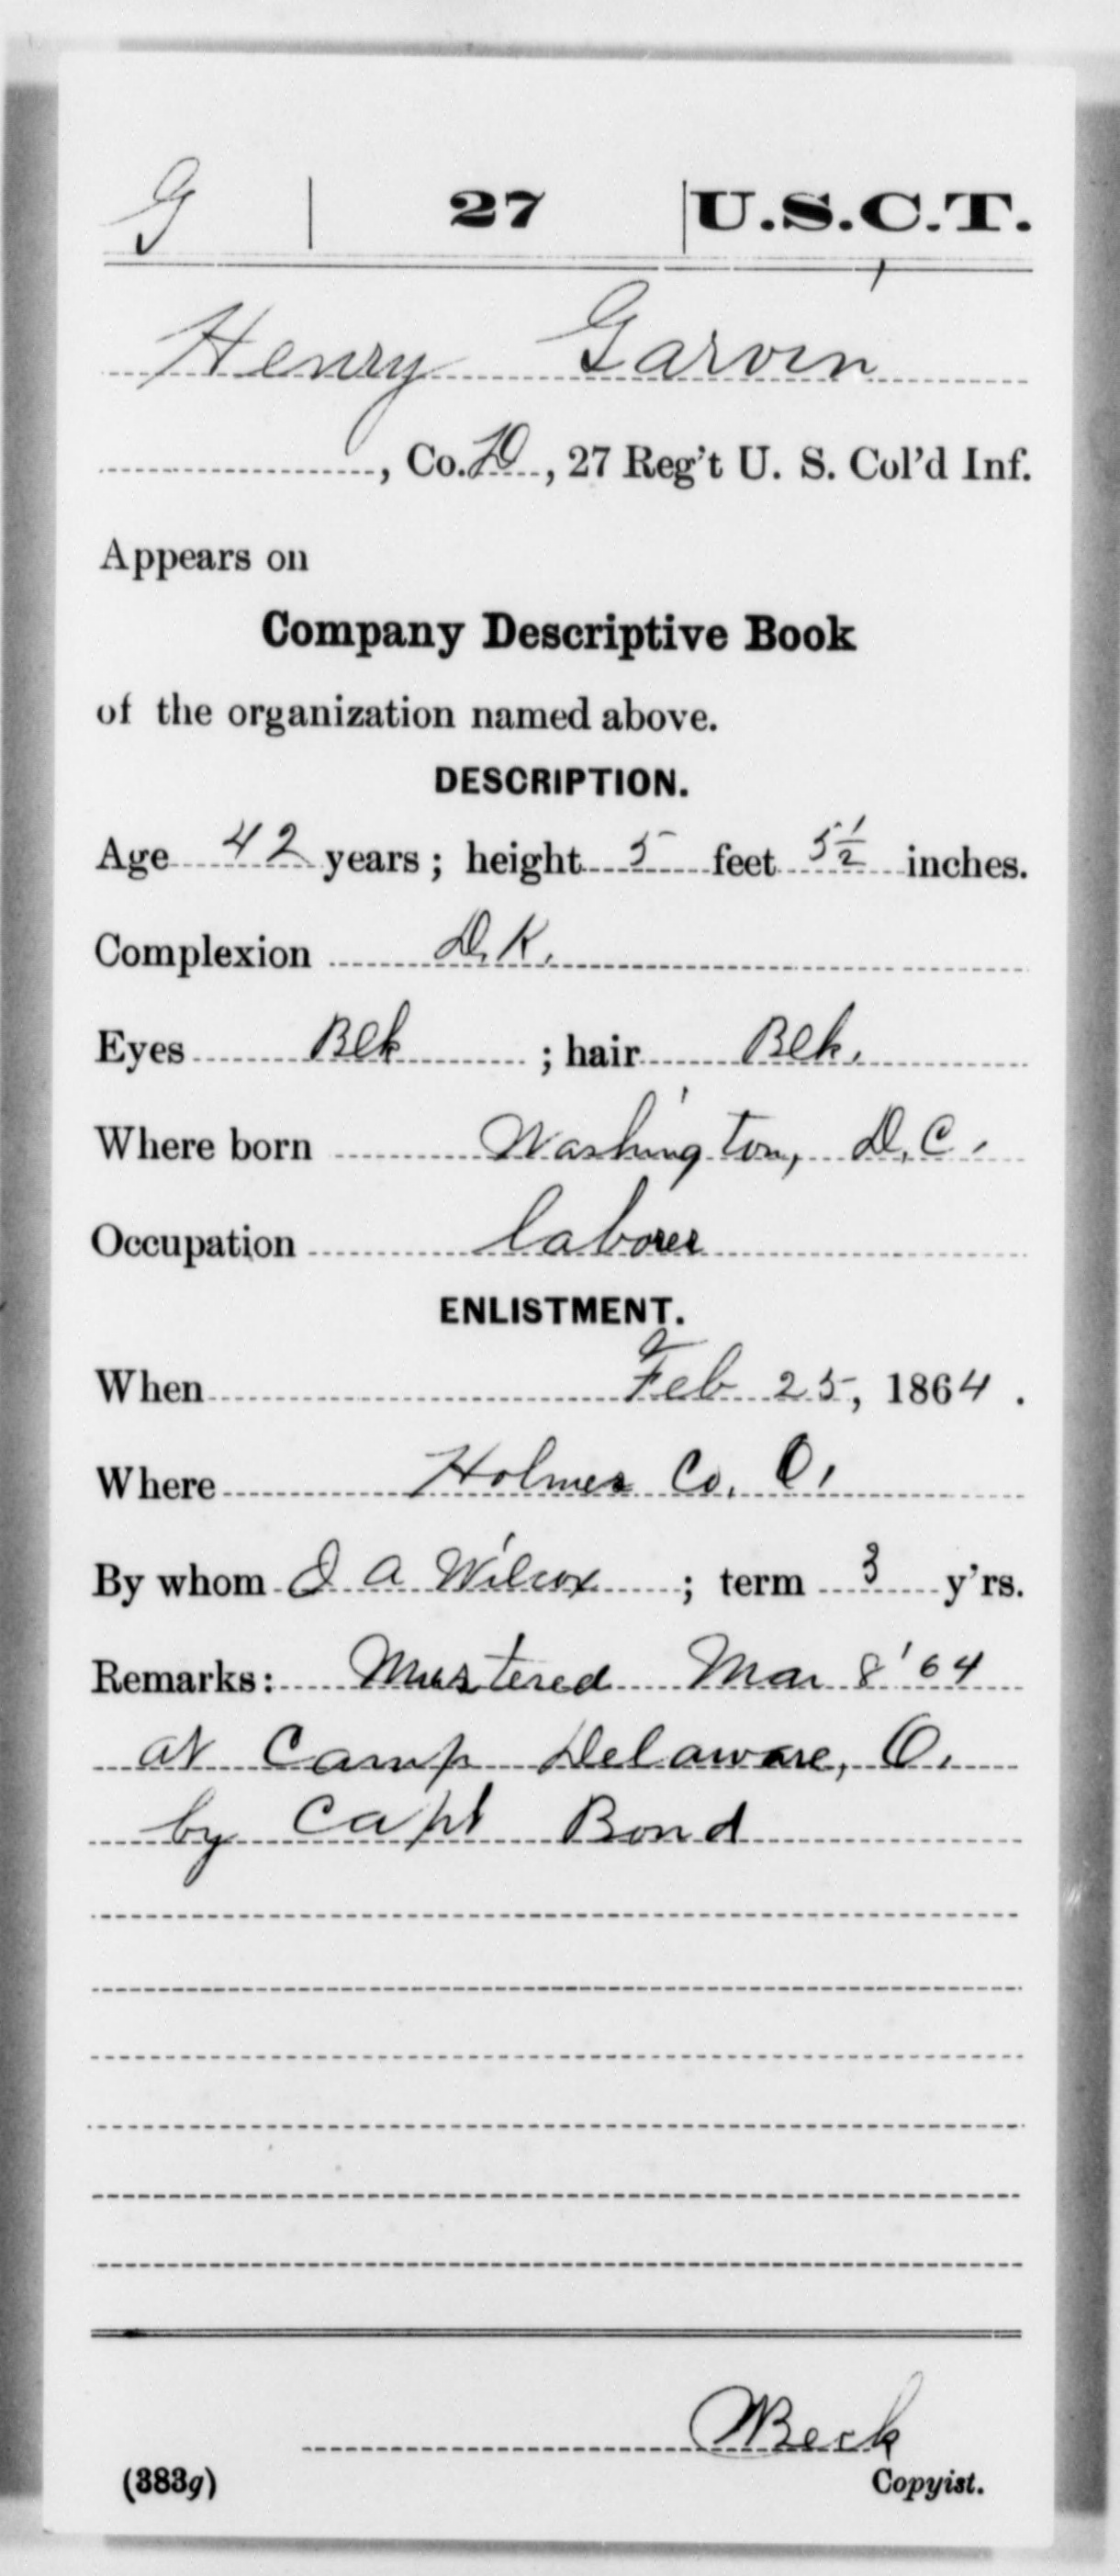 G | 27 | U.S.C.T.
Henry Garvin
, Co. D, 27 Reg't U. S. Col'd Inf.
Appears on
Company Descriptive Book
of the organization named above.
DESCRIPTION.
Age 42 years; height 5 feet 5½ inches.
Complexion D.K.
Eyes Blk ; hair Blk.
Where born Washington, D.C.
Occupation laborer
ENLISTMENT.
When Feb 25, 1864.
Where Holmes Co. O.
By whom J A Wilcox ; term 3 y'rs.
Remarks: Mustered Mar 8 '64
at Camp Delaware, O.
by Capt Bond
Beck
(383g) Copyist.